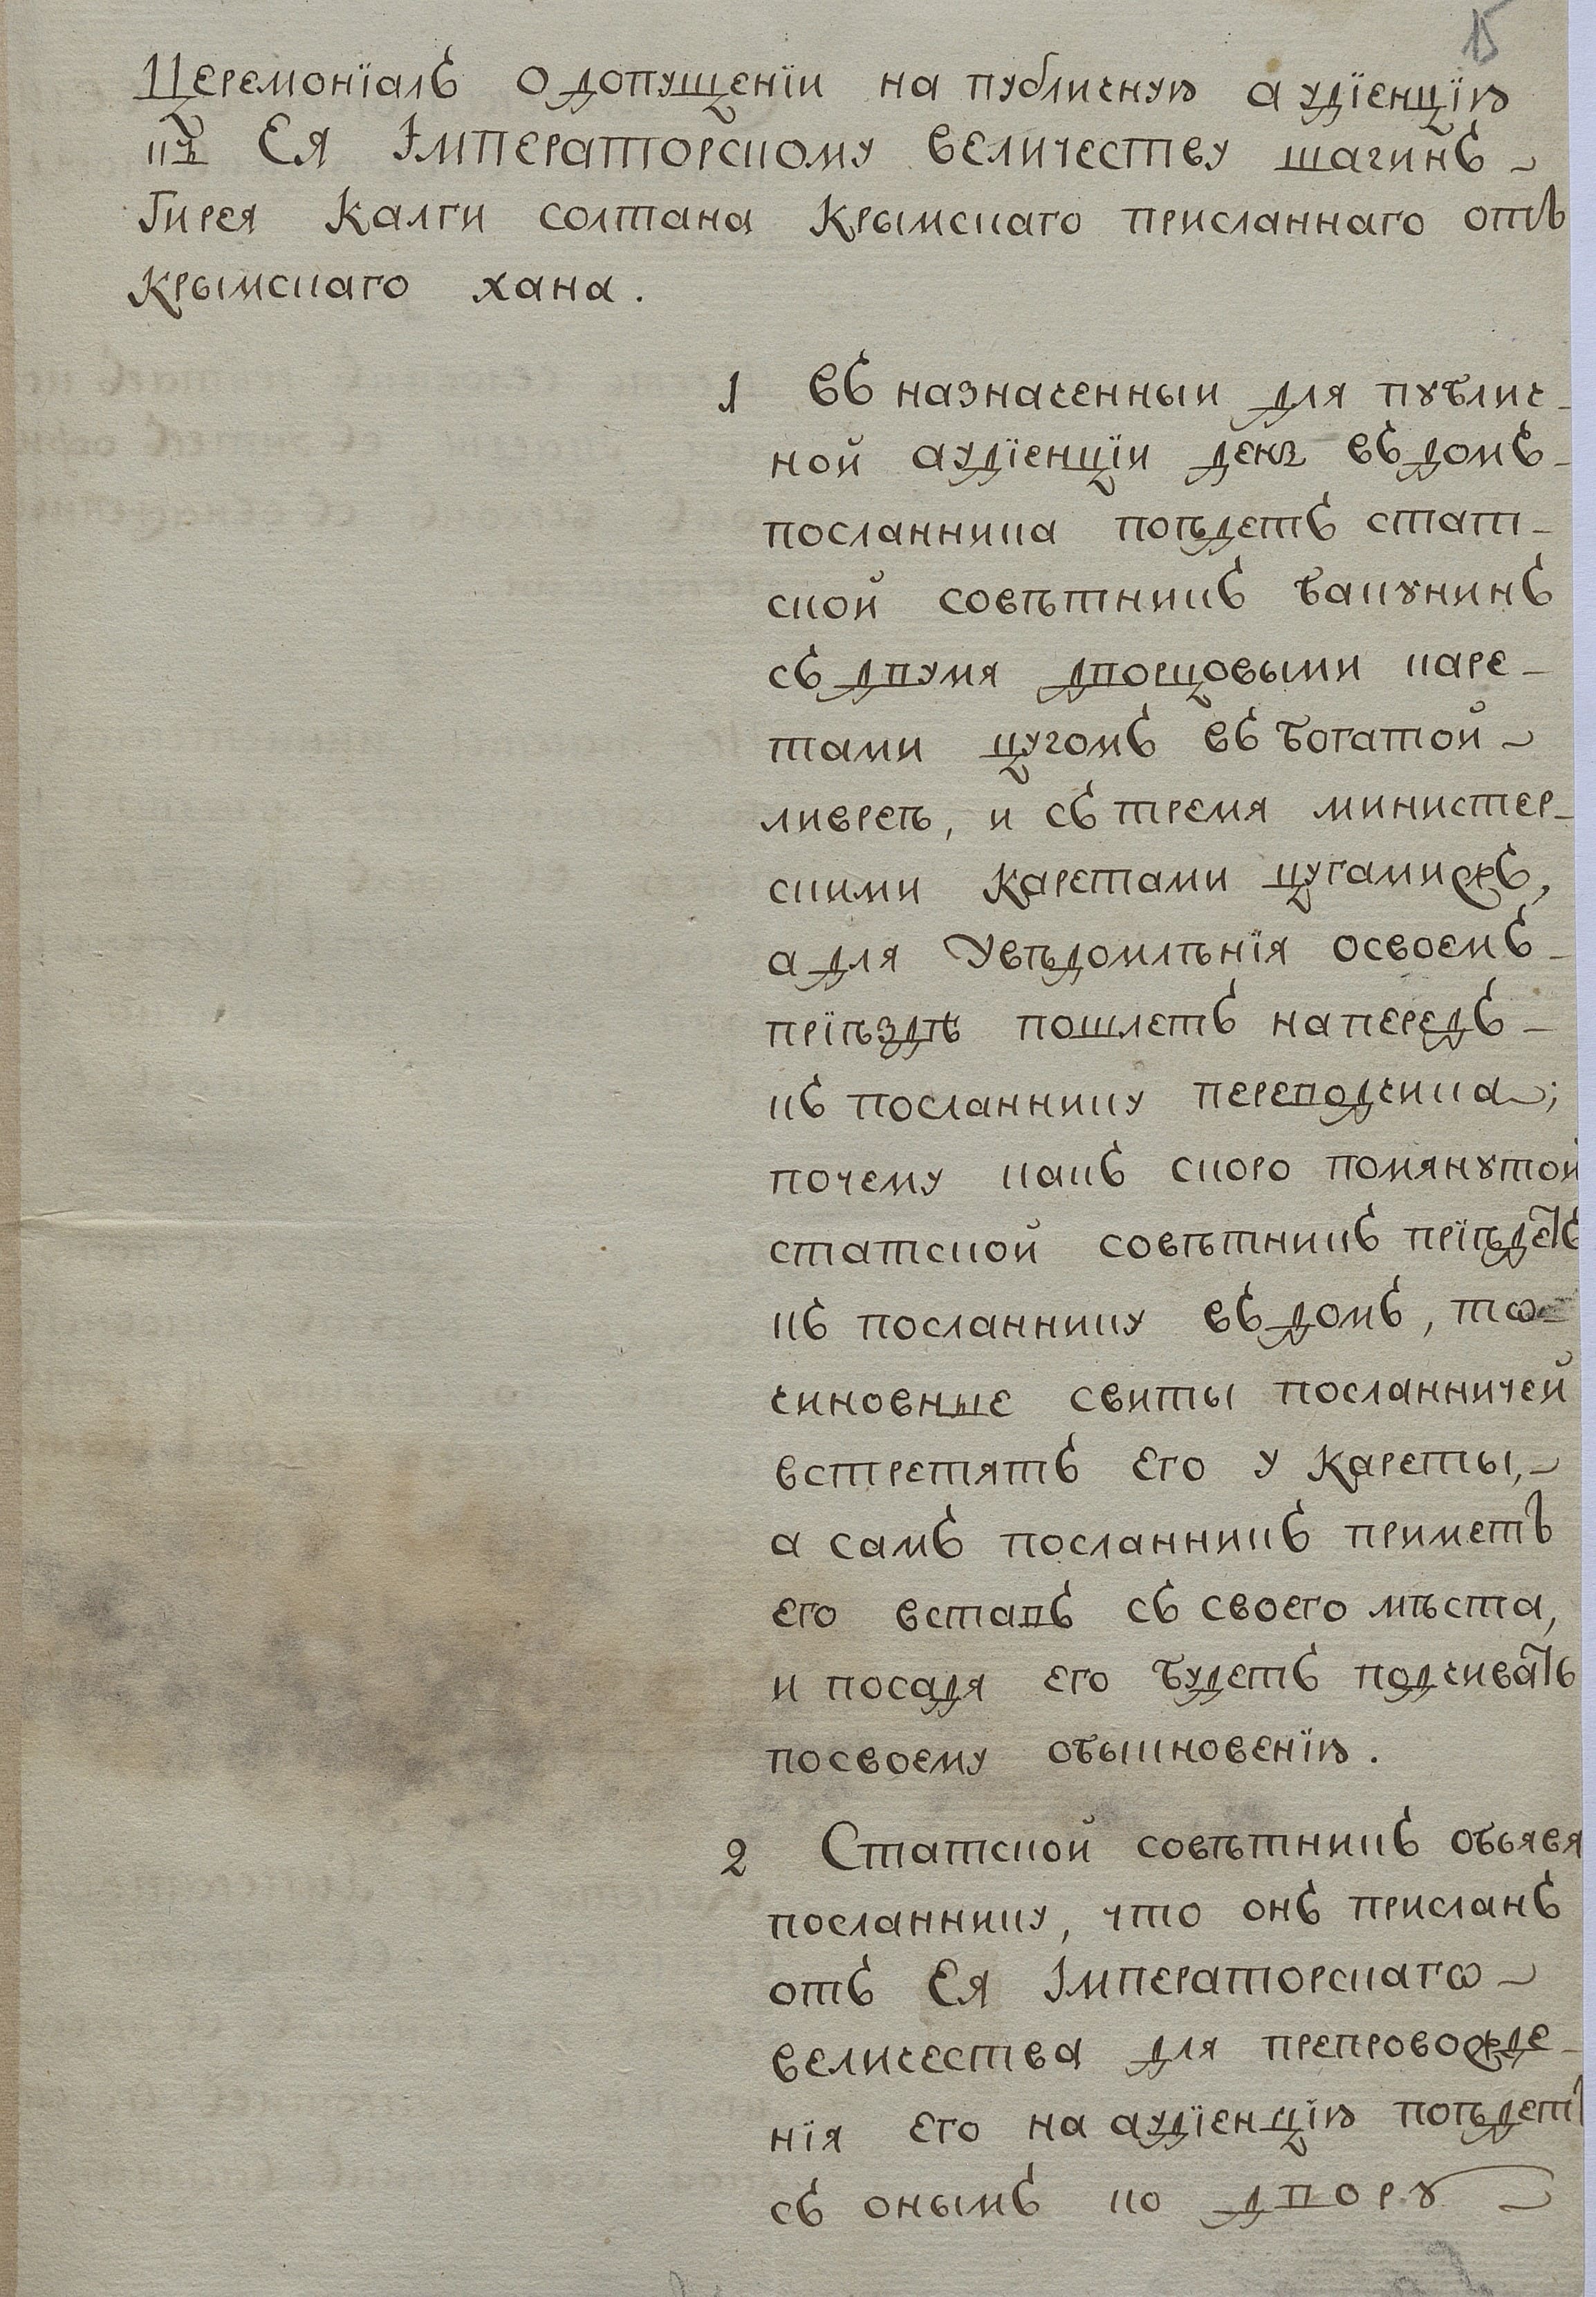 15
Церемонїалъ о допущенїи на публичную аудїенцїю
къ Ея Імператорскому величеству шагинъ
Гирея Калги солтана Крымскаго присланнаго отъ
Крымскаго хана.
1 въ назначенныи для публич-
ной аудїенцїи день въ домъ-
посланника поѣдетъ стат-
ской совѣтникъ бакунинъ
съ двумя дворцовыми каре-
тами цугомъ въ богатой
ливреѣ, и съ тремя министер-
скими Каретами цугами жъ,
а для Увѣдомлѣнїя о своемъ-
прїѣздѣ пошлетъ напередъ-
къ посланнику переводчика;
почему какъ скоро помянутой
статской совѣтникъ прїѣдетъ
къ посланнику въ домъ, то
чиновные свиты посланничей
встретятъ его у Кареты,
а самъ посланникъ приметъ
его вставъ съ своего мѣста,
и посадя его будетъ подчивать
по своему обыкновенїю.
2 Статской совѣтникъ объявя
посланнику, что онъ присланъ
отъ Ея Імператорскагѡ
величества для препровожде-
нїя его на аудїенцїю поѣдетъ
съ онымъ ко двору